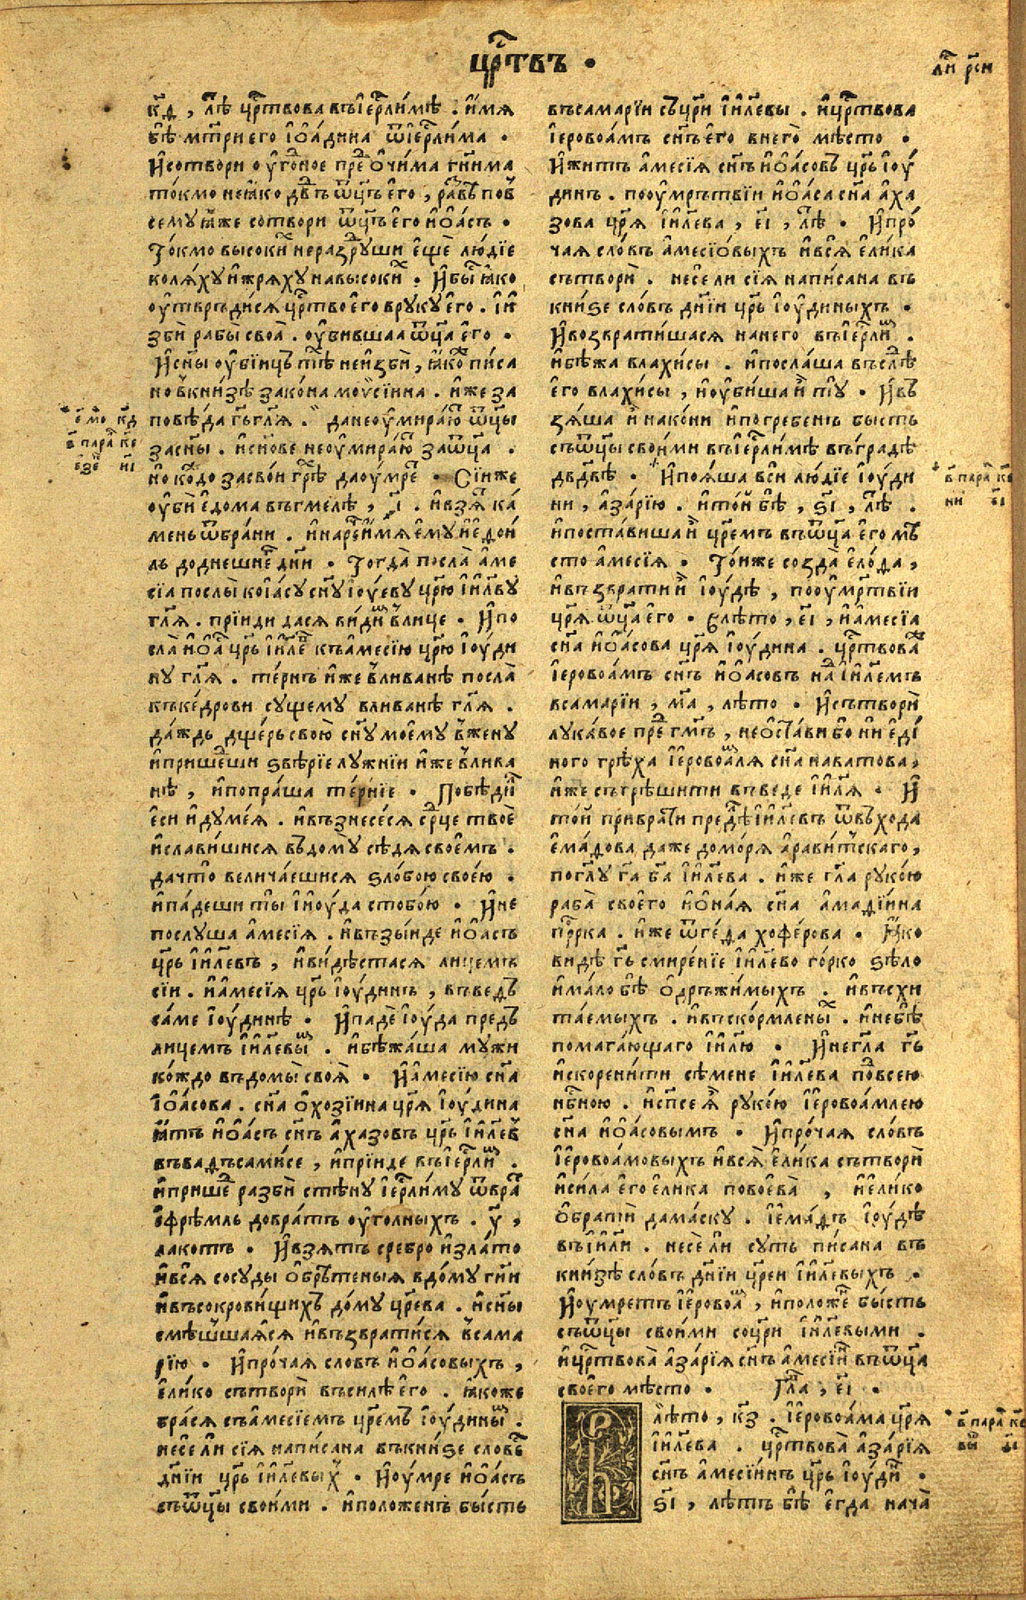 цр҇твъ ·
лⷭ҇ рси
к҃д , лѣ цр҇твова въіер҇лимѣ . имя
бѣ мт҃ри его іѡадина ѿіер҇лима ·
Исотвори оугодное преⷣ очима гн҇има
токмо неꙗко дв҃дъ ѿц҃ъ его , равъ пов
семуꙗже сотвори ѿц҃ъ его иѡасъ ·
Токмо высокиⷯ неразруши еще людїе
коляху ижряху навысокиⷯ · Ибыⷭ ꙗко
оутвръдися цр҇тво его вруку его . ѝ
зби рабы своѧ . оубившаа ѿц҃а его ·
Исн҃ы оубїицъ тѣⷯ неизби , ꙗкоⷤ писа
но вкнизѣ закона моѵсїина . иже за
повѣда гь гл҃я . данеоумираюⷮ ѿц҃ы
засн҃ы . исн҃ове неоумираюⷮ заѿц҃а .
но коⷤдо засвои грѣⷯ даоумреⷮ · Сїиже
оуби едома вьгмелѣ , ҂і . ивзя ка
мень ѿбрани . инареⷱ имя ему іеѳои
ль доднешнеⷢ дн҃и · Тогда посла аме
сїа послы коїасу сн҃у іоуеву цр҃ю іил҃ву
гл҃я . прїиди дася видиⷨ влице · Ипо
сла иѡаⷭ цр҃ь іил҃еⷡ къамесїю цр҃ю іоуди
ну гл҃я . тернъ иже вливанѣ посла
къкедрови сущему вливанѣ гл҃я .
даждь дщерь свою сн҃у моему вжену
ипришеⷣши ѕвѣрїе лужнїи иже влива
нѣ , ипопраша тернїе · Побѣдиⷧ
еси идумея . ивъзнесеся ср҃це твое
иславишися въдому сѣдя своемъ .
дачто величаешися ѕлобою своею .
ипадеши ты иіоуда стобою · Ине
послуша амесїя . ивъзыиде иѡасъ
цр҃ь іил҃евъ , ивидѣстася лицемъ
сїи . иамесїя цр҃ь іоудинъ , въведъ
саме іоудинѣ · Ипаде іоуда предъ
лицемъ іил҃евыⷨ . ибѣжаша мужи
кождо въдомы своѧ · Иамесїю сн҃а
іѡасова . сн҃а охозїина цр҃я іоудина
ꙗтъ иѡасъ сн҃ъ ахазовъ цр҃ь іил҃еⷡ
въвадъсамисе , иприиде въіер҇лиⷨ .
ипришеⷣ разби стѣну іер҇лиму ѿвраⷮ
ефрѣмль довратъ оуголныхъ . у҃ ,
лакотъ · Ивзятъ сребро излато
ився сосуды обрѣтеныя вдому гн҃и
ивъсокровищихъ дому цр҃ева . исн҃ы
смѣшшаяся ивъзвратися всама
рїю · Ипрочая словъ иѡасовыхъ ,
елико сътвори въсилѣ его . ꙗкоже
брася съамесїемъ цр҃емъ іоудиныⷨ .
несе ли сїя написана въкниѕе словеⷭ
дн҃їи цр҃ь іил҃евыⷯ · Иоумре иѡасъ
съѿц҃ы своими . иположенъ бысть
въсамарїи съцр҃и іил҃евы . ицр҇твова
іеровоамъ сн҃ъ его внего мѣсто ·
Ижитъ амесїя сн҃ъ иѡасовъ цр҃ь іоу
динъ . пооумрътвїи иѡаса сн҃а аха
зова цр҃я іил҃ева , еі , лѣⷮ · Ипро
чая словъ амесїовыхъ ився елика
сътвори . несе ли сїя написана въ
книѕе словъ дн҃їи цр҃ь іоудиныхъ ·
Ивозвратишася нанего въіер҇лиⷨ .
ибѣжа влахисы . ипослаша въслѣⷣ
его влахисы , иоубиша и ту · Ивъ
зяша и накони ипогребенъ бысть
съѿц҃ы своими въіер҇лимѣ въградѣ
дв҃двѣ · Ипояша вси людїе іоуди
ни , азарїю . итой бѣ , ѕі , лѣⷮ .
ипоставиша и цр҃емъ въѿц҃а его мѣ
сто амесїя · Тойже созда елода ,
ивъзврати и іоудѣ , пооумртвїи
цр҃я ѿц҃а его · Влѣто , еі , иамесїа
сн҃а иѡасова цр҃я іоудина . цр҇твоваⷲ
іеровоамъ сн҃ъ иѡасовъ наⷣ іил҃емъ
всамарїи , ма , лѣто · Исътвори
лукавое преⷣ гм҃ъ , неостави бо ни еді
ного грѣха іеровоаⷨля сн҃а наватова ,
иже сьгрѣшити въведе іил҃я · И
той приврати предѣⷧ іил҃евъ ѿвъхода
емадова даже доморя аравитскаго ,
погл҃у га ба іил҃ева . иже гл҃а рукою
раба своего иѡная сн҃а амадїина
пр҇рка . иже ѿгеда хоферова · Ꙗко
видѣ гь смиренїе іил҃ево горко ѕѣло
имало бѣ одръжимыхъ . ивъсхи
таемыхъ . ивъскормленыⷯ . инебѣ
помагающаго іил҃ю · Инегл҃а гь
искоренити сѣмене іил҃ева подвсею
нб҃ною . исп҃се я рукою іеровоамлею
сн҃а иѡасовымъ · Ипрочая словъ
іеровоамовыхъ ився елика сътвори
исила его елика повоева , иелико
обратїи дамаску . іемадъ іоудѣ
въіил҃и . несе ли суть писана въ
книзѣ словъ дн҃їи цр҃еи іил҃евыхъ ·
Иоумретъ іеровоаⷨ , иположеⷩ бысть
съѿц҃ы своими соцр҃и іил҃евыми .
ицр҇твова азарїя сн҃ъ амесїиⷩ въѿц҃а
своего мѣсто · Глаⷡ , еі ·
В лѣто , кз . іеровоама цр҃я
іил҃ева . цр҇твова азарїя
сн҃ъ амесїинъ цр҃ь іоудиⷩ ·
ѕі , лѣтъ бѣ егда нача
в параⷧ ке
в параⷧ ке
в параⷧ ке